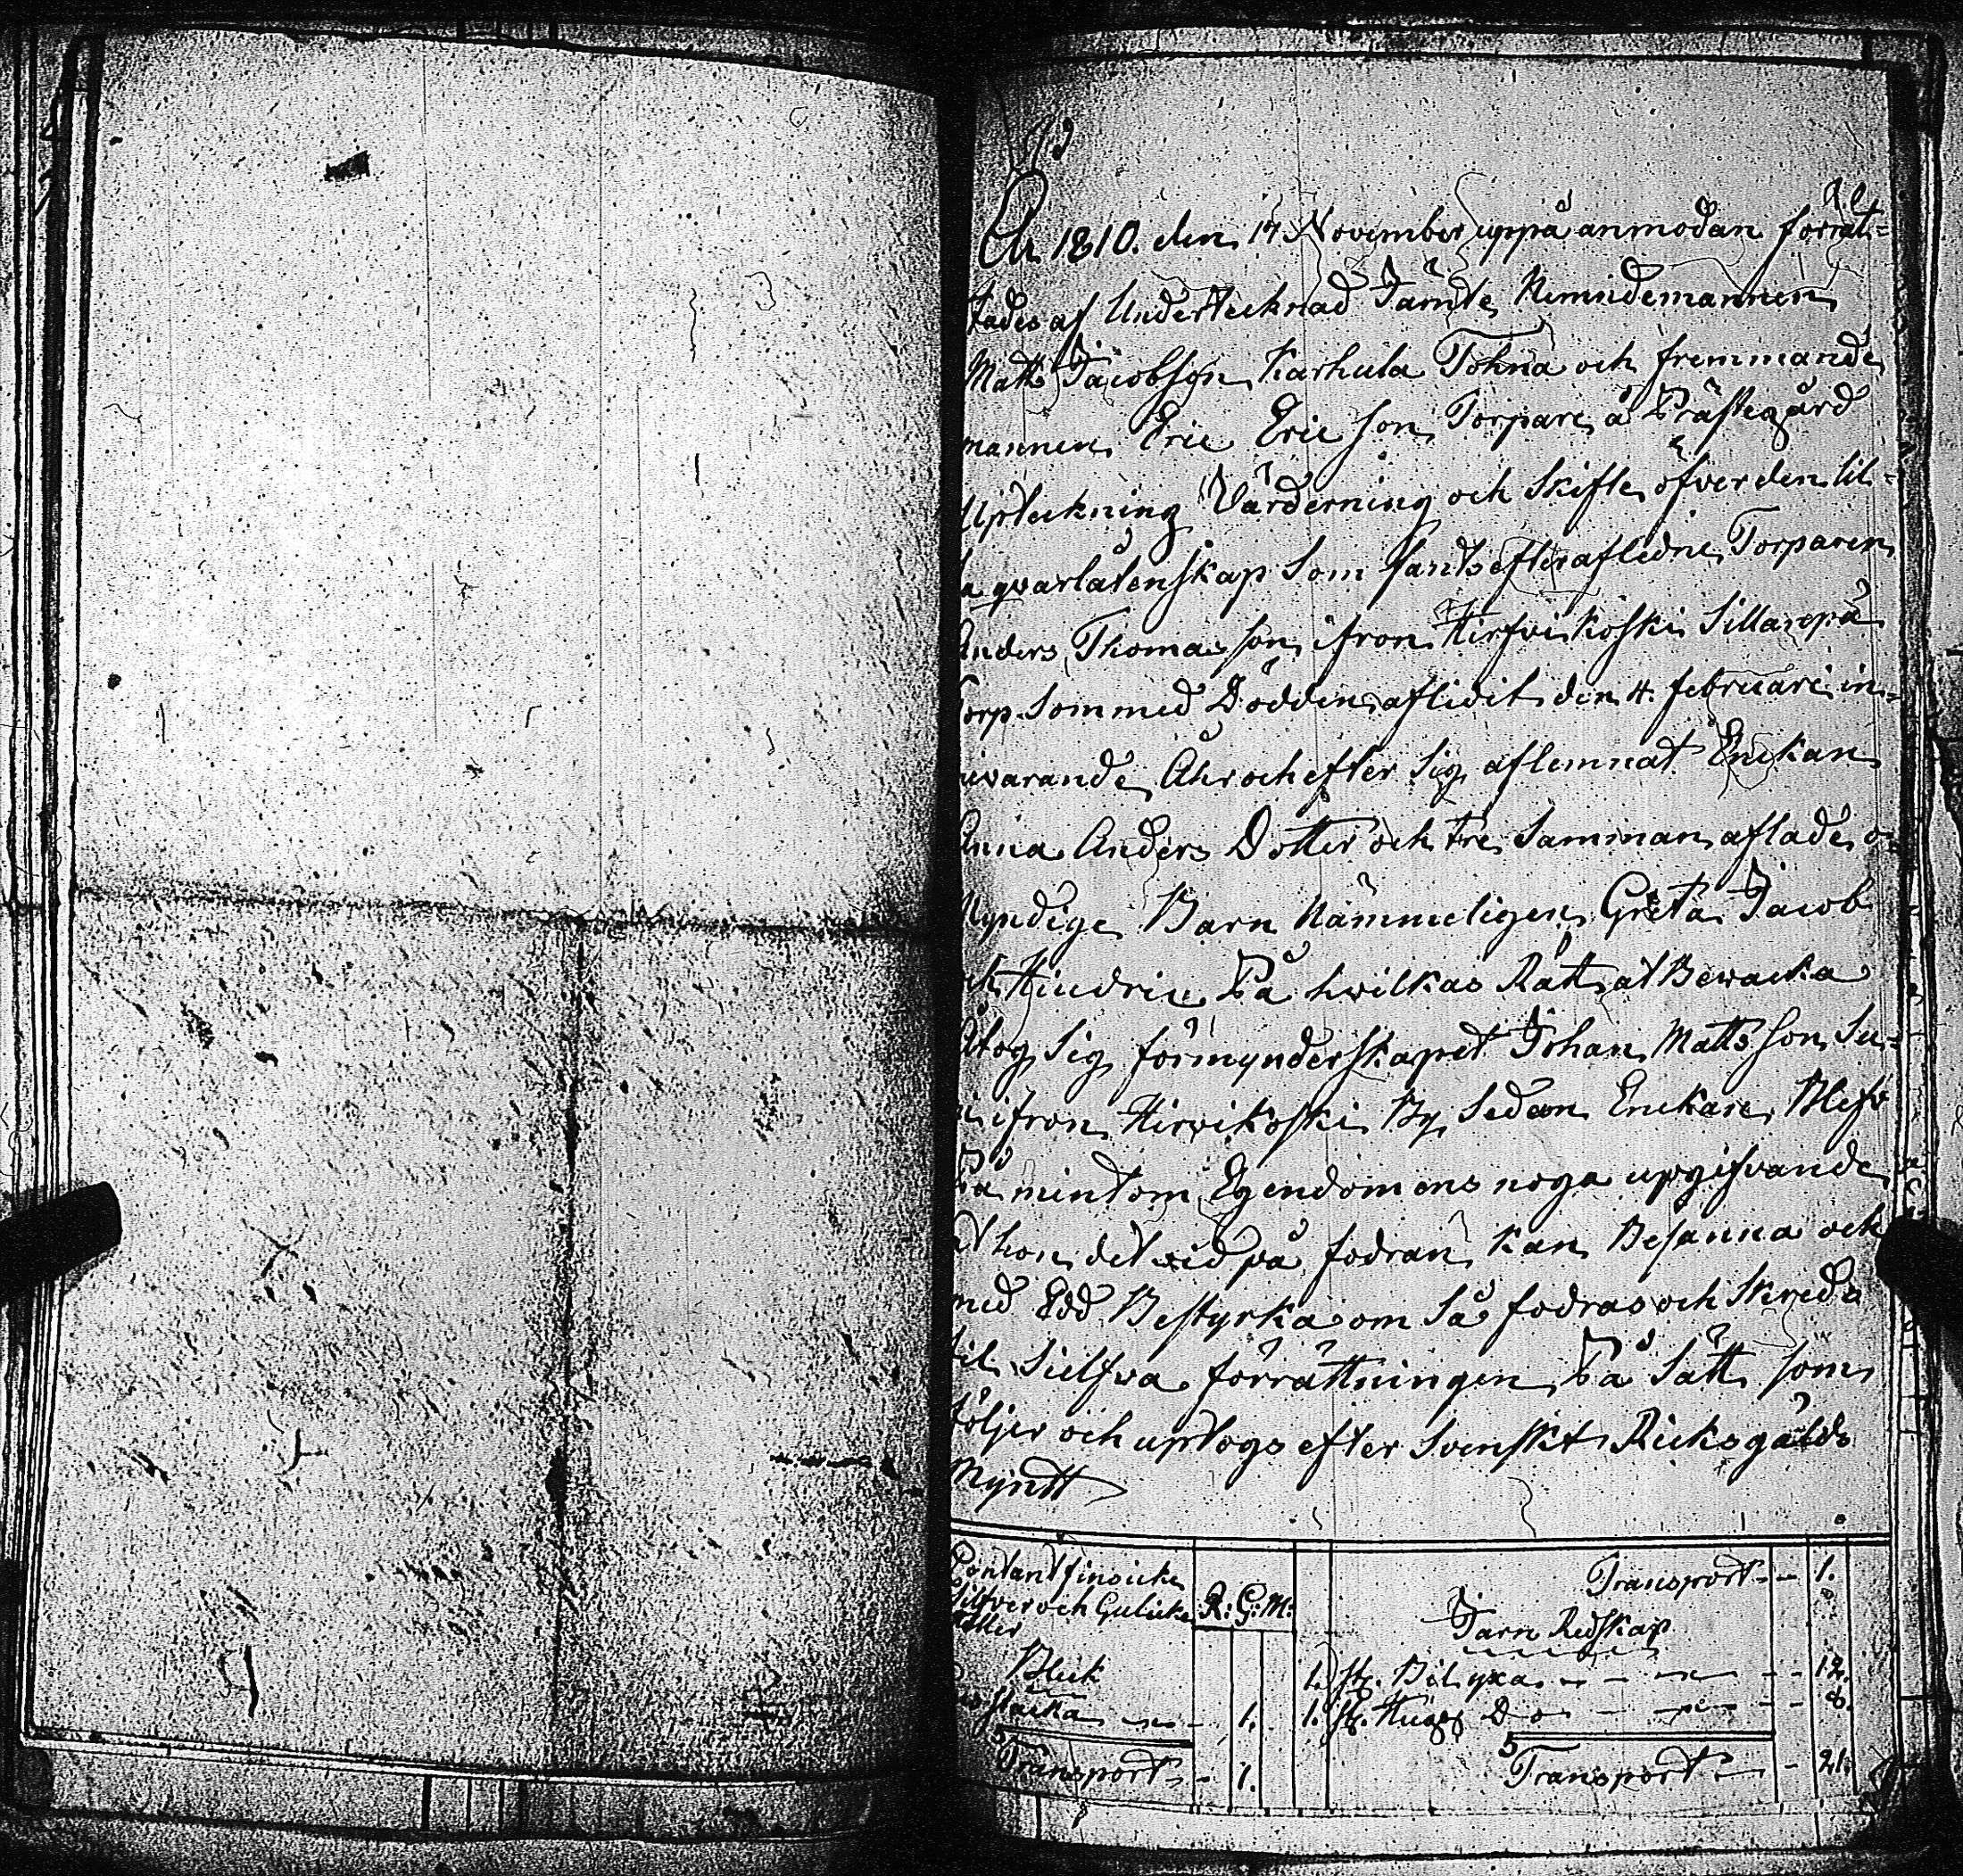 Åhr 1810. den 17 November uppå anmodan förrät-
tades af Undertecknad Jämte Nemndemannen
Matts Jacobsson Karhula Tohna och fremmande
mannen Eric Ericsson Torpare å Prästegård
Upteckning Värderning och Skifte öfver den lil-
la qvarlåtenskap Som fants efter afledne Torparen
Anders Thomasson ifron Hirfvikoski Sillanpä
Torp Som med Dödden aflidit den 4. februarii in-
nevarande Åhr och efter Sig aflemnat Enckan
Anna Anders Dotter och tre Samman aflade o-
Myndige Barn Nämmeligen Greta Jacob
och Hindric På hvilkas Rätt at Bewacka
Åtog Sig förmynderskapet Johan Mattsson Su-
ifron Hirvikoski By Sedan Enckan Blefv
Påmint om Egendomens noga upgifvande
At hon det vid på fodran kan Besanna och
med Edd Bestyrka om Så fodras och Skreds
til Sielfva förrättningen På Sätt som
följer och uptogs efter Svenskt Ricksgälds
Myntt
Contant finsicke Transport - - 1.
Silfver och Gulicke R: G: M:
Jarn Redskap
Bleck 1. st. Bilyxa - - - 12.
flaska - - 1. 1. st. Hugg Do - - - 8.
Transport - 1. Transport - 21.